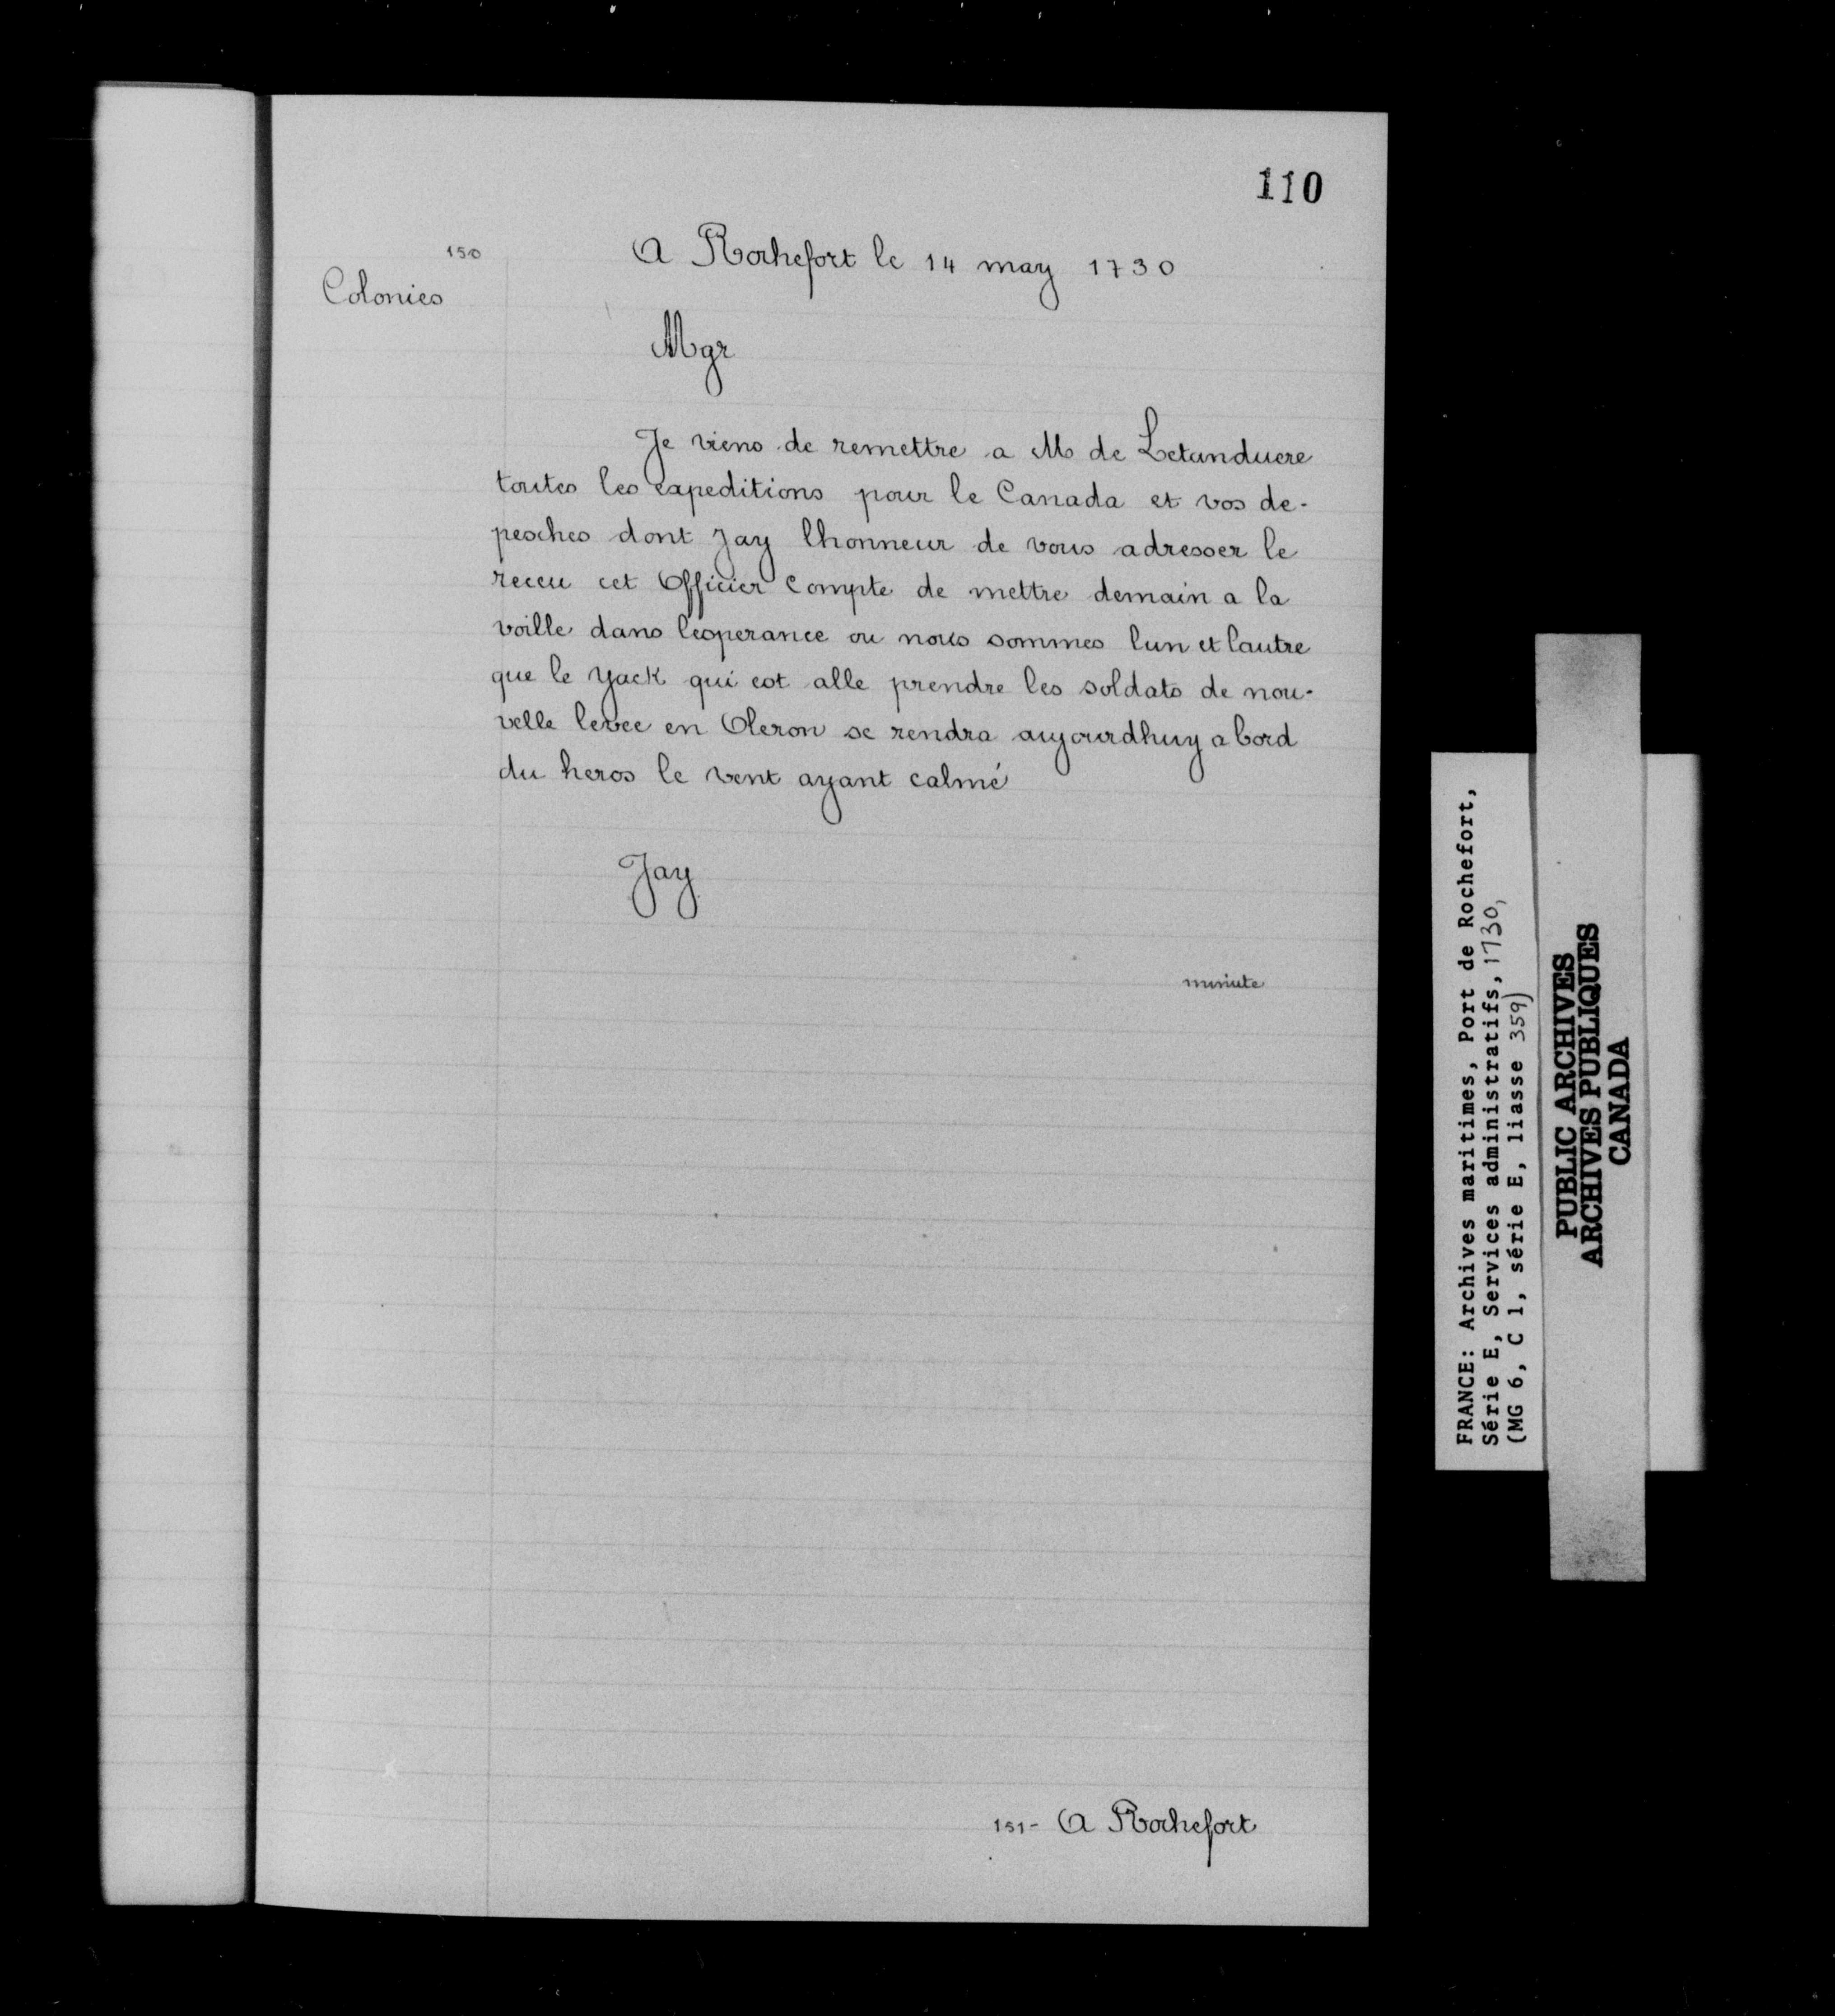 110
150
A Rochefort le 14 may 1730
Colonies
Mgr
Je viens de remettre a M de Letanduere
toutes les expeditions pour le Canada et vos de-
pesches dont Jay lhonneur de vous adresser le
receu cet Officier compte de mettre demain a la
voille dans lesperance ou nous sommes lun et lautre
que le yack qui est alle prendre les soldats de nou-
velle levee en Oleron se rendra aujourdhuy a bord
du heros le vent ayant calmé
Jay
minute
151- A Rochefort
FRANCE: Archives maritimes, Port de Rochefort,
Série E, Services administratifs, 1730,
(MG 6, C 1, série E, liasse 359)
PUBLIC ARCHIVES
ARCHIVES PUBLIQUES
CANADA